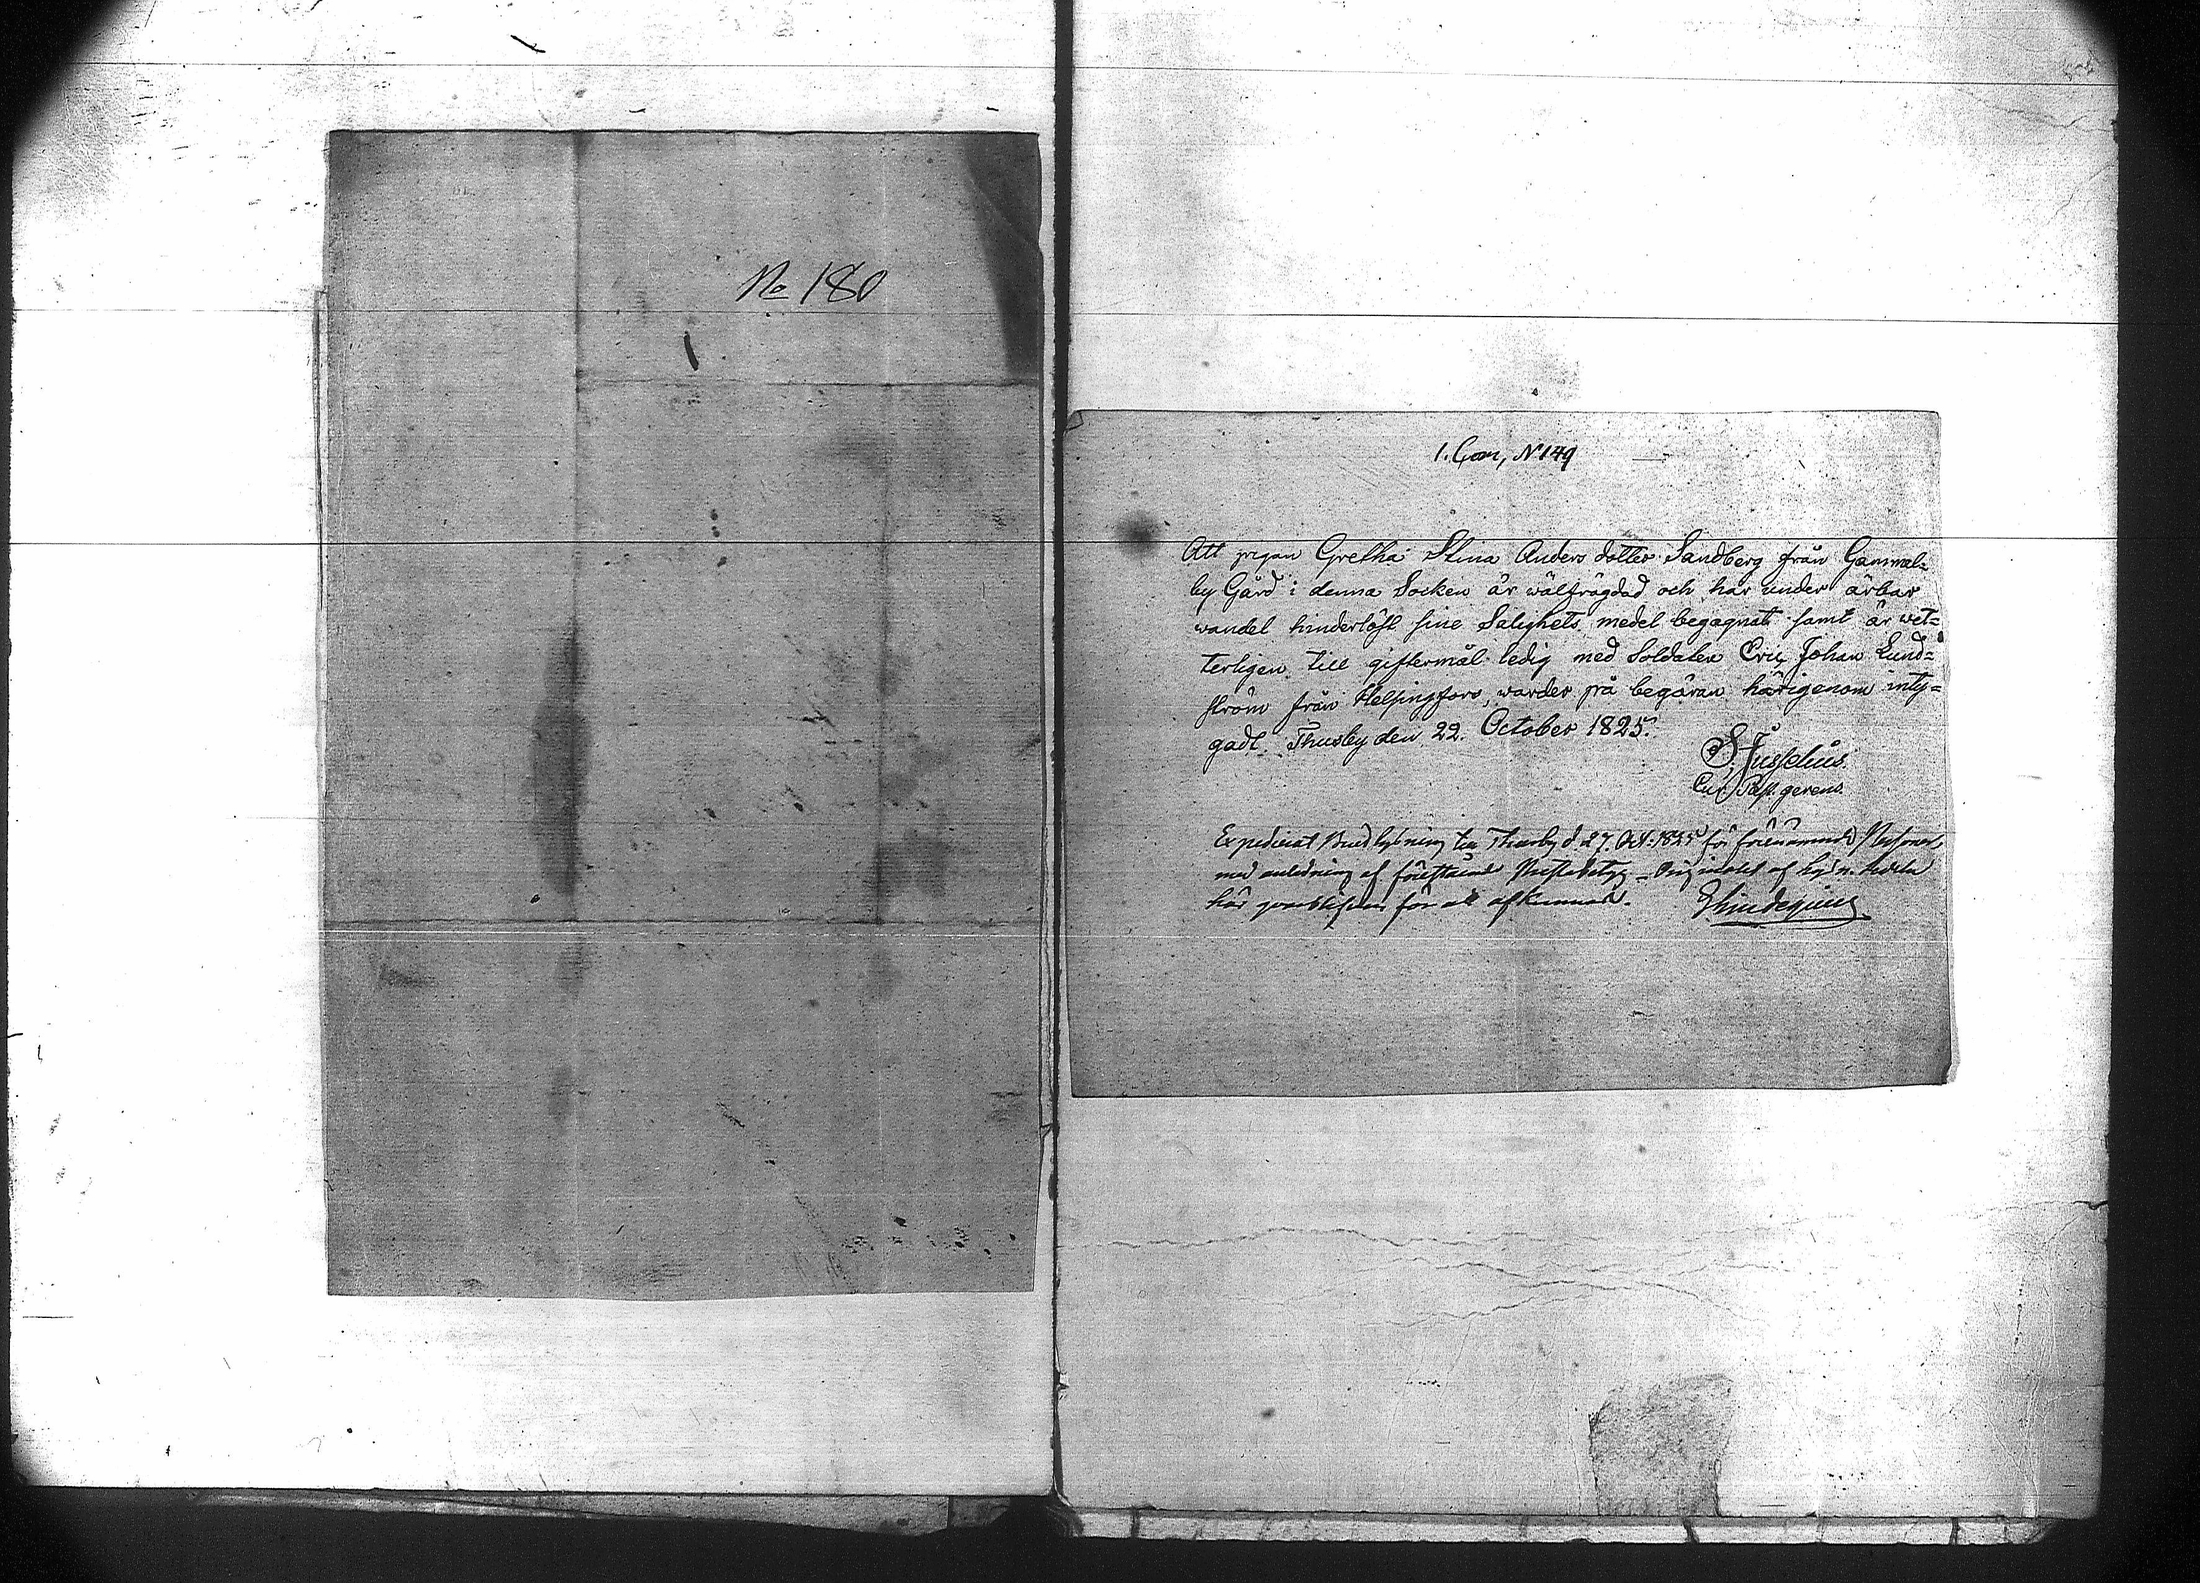 No 180
1. Com, N 149
Att pigan Gretha Stina Anders dotter Sandberg från Gammel=
by Gård i denna Socken är wälfrägdad och har under ärbar
wandel hinderlöst sine Salighets medel begagnat samt är wet=
terligen till giftermål ledig med Soldaten Eric Johan Lund=
ström från Helsingfors, warder på begäran härigenom inty=
gadt. Thusby den 22. October 1825.
S. Jusselius.
Cur. Past. gerens.
Expedierat till Thusby d 27. Oct. 1825 för förenämnde
med anledning af förestående af
här för att afkunnas.